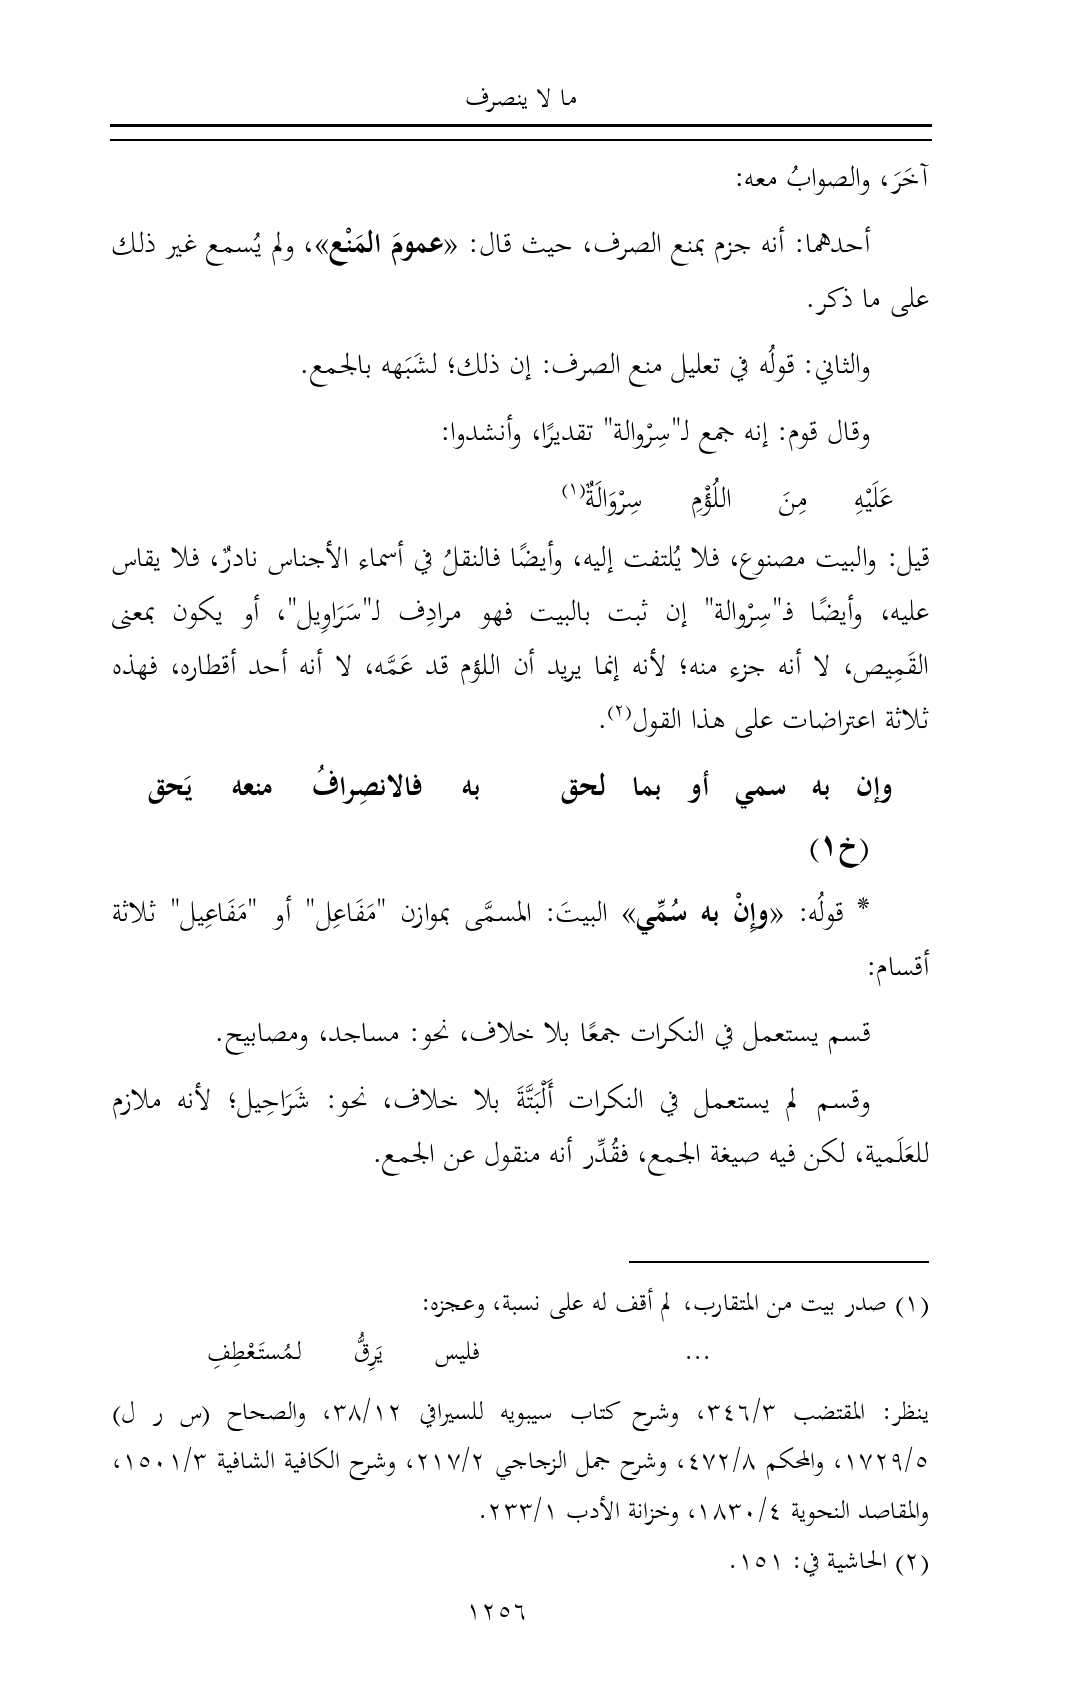 ما لا ينصرف
آخَرَ، والصوابُ معه:
أحدهما: أنه جزم بمنع الصرف، حيث قال: «عمومَ المَنْع»، ولم يُسمع غير ذلك
على ما ذكر.
والثاني: قولُه في تعليل منع الصرف: إن ذلك؛ لشَبَهه بالجمع.
وقال قوم: إنه جمع لـ"سِرْوالة" تقديرًا، وأنشدوا:
عَلَيْهِ مِنَ اللُؤْمِ سِرْوَالَةٌ(١)
قيل: والبيت مصنوع، فلا يُلتفت إليه، وأيضًا فالنقلُ في أسماء الأجناس نادرٌ، فلا يقاس
عليه، وأيضًا فـ"سِرْوالة" إن ثبت بالبيت فهو مرادِف لـ"سَرَاوِيل"، أو يكون بمعنى
القَمِيص، لا أنه جزء منه؛ لأنه إنما يريد أن اللؤم قد عَمَّه، لا أنه أحد أقطاره، فهذه
ثلاثة اعتراضات على هذا القول(٢).
وإن به سمي أو بما لحق به فالانصِرافُ منعه يَحق
(خ١)
* قولُه: «وإِنْ به سُمِّي» البيتَ: المسمَّى بموازن "مَفَاعِل" أو "مَفَاعِيل" ثلاثة
أقسام:
قسم يستعمل في النكرات جمعًا بلا خلاف، نحو: مساجد، ومصابيح.
وقسم لم يستعمل في النكرات أَلْبَتَّةَ بلا خلاف، نحو: شَرَاحِيل؛ لأنه ملازم
للعَلَمية، لكن فيه صيغة الجمع، فقُدِّر أنه منقول عن الجمع.
(١) صدر بيت من المتقارب، لم أقف له على نسبة، وعجزه:
... فليس يَرِقُّ لمُستَعْطِفِ
ينظر: المقتضب ٣٤٦/٣، وشرح كتاب سيبويه للسيرافي ٣٨/١٢، والصحاح (س ر ل)
١٧٢٩/٥، والمحكم ٤٧٢/٨، وشرح جمل الزجاجي ٢١٧/٢، وشرح الكافية الشافية ١٥٠١/٣،
والمقاصد النحوية ١٨٣٠/٤، وخزانة الأدب ٢٣٣/١.
(٢) الحاشية في: ١٥١.
١٢٥٦